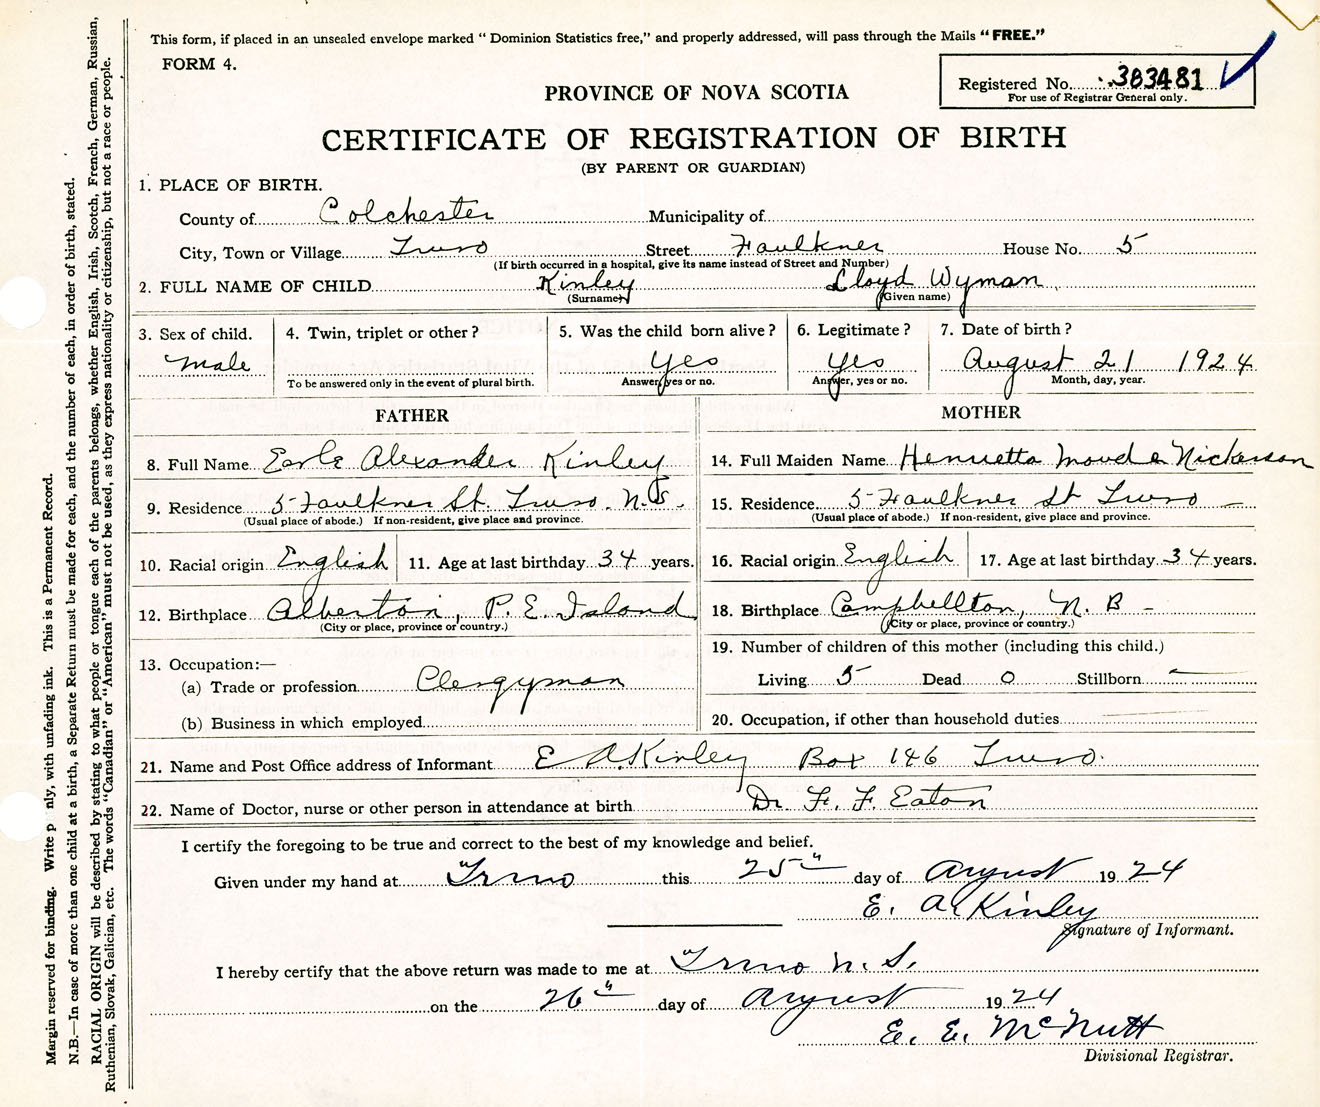 This form, if placed in an unsealed envelope marked “ Dominion Statistics free,” and properly addressed, will pass through the Mails “ FREE.”
FORM 4.
Registered No. 383481
For use of Registrar General only.
PROVINCE OF NOVA SCOTIA
CERTIFICATE OF REGISTRATION OF BIRTH
(BY PARENT OR GUARDIAN)
1. PLACE OF BIRTH.
County of Colchester Municipality of
City, Town or Village Truro Street Faulkner House No. 5
(If birth occurred in a hospital, give its name instead of Street and Number)
2. FULL NAME OF CHILD Kinley Lloyd Wyman
(Surname) (Given name)
3. Sex of child. 4. Twin, triplet or other? 5. Was the child born alive? 6. Legitimate? 7. Date of birth?
Male Yes Yes August 21 1924
To be answered only in the event of plural birth. Answer, yes or no. Answer, yes or no. Month, day, year.
FATHER
8. Full Name Earle Alexander Kinley
9. Residence 5 Faulkner St. Truro. N.S.
(Usual place of abode.) If non-resident, give place and province.
10. Racial origin English 11. Age at last birthday 34 years.
12. Birthplace Alberton, P. E. Island
(City or place, province or country.)
13. Occupation:—
(a) Trade or profession Clergyman
(b) Business in which employed
MOTHER
14. Full Maiden Name Henrietta Maude Nickerson
15. Residence 5 Faulkner St Truro —
(Usual place of abode.) If non-resident, give place and province.
16. Racial origin English 17. Age at last birthday 34 years.
18. Birthplace Campbellton, N. B –
(City or place, province or country.)
19. Number of children of this mother (including this child.)
Living 5 Dead 0 Stillborn —
20. Occupation, if other than household duties —
21. Name and Post Office address of Informant E A. Kinley Box 146 Truro.
22. Name of Doctor, nurse or other person in attendance at birth Dr. F. F. Eaton
I certify the foregoing to be true and correct to the best of my knowledge and belief.
Given under my hand at Truro this 25th day of August 1924
E. A. Kinley
Signature of Informant.
I hereby certify that the above return was made to me at Truro N. S.
on the 26th day of August 1924
E. E. McNutt
Divisional Registrar.
Margin reserved for binding. Write nly, with unfading ink. This is a Permanent Record.
N.B.—In case of more than one child at a birth, a Separate Return must be made for each, and the number of each, in order of birth, stated.
RACIAL ORIGIN will be described by stating to what people or tongue each of the parents belongs, whether English, Irish, Scotch, French, German, Russian,
Ruthenian, Slovak, Galician, etc. The words “Canadian” or “American” must not be used, as they express nationality or citizenship, but not a race or people.